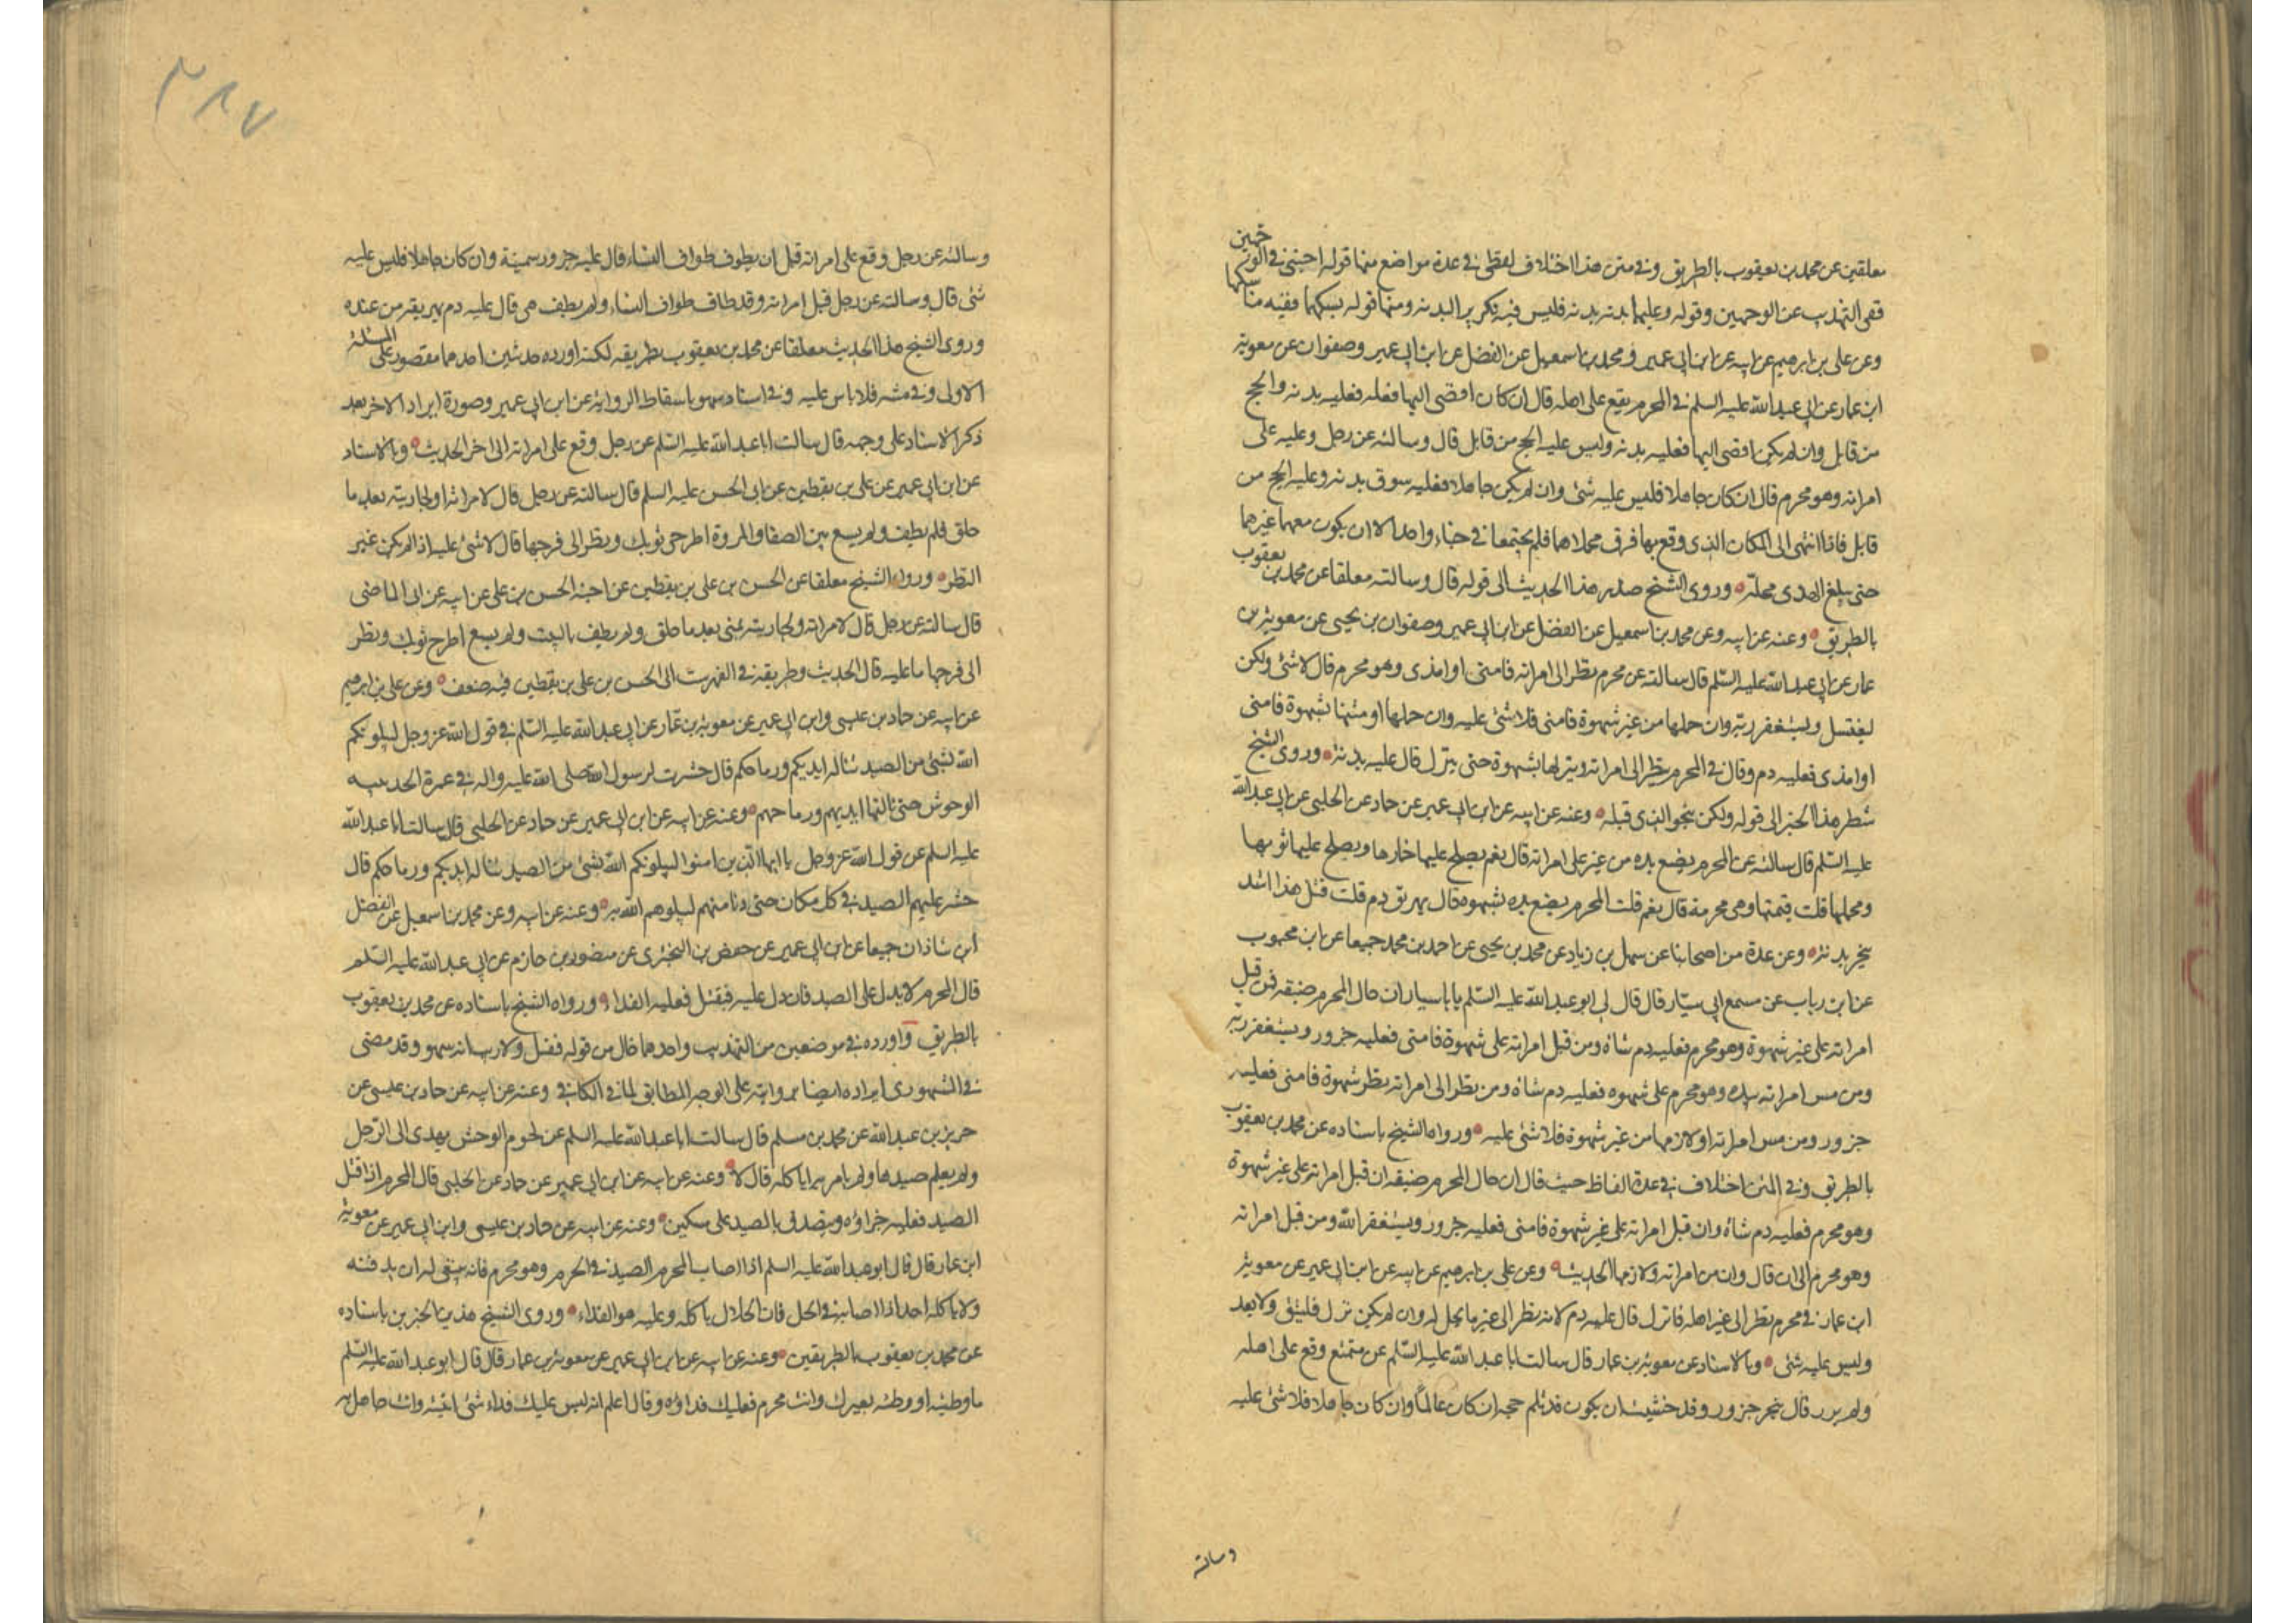 معلقين عن محمد بن يعقوب بالطريق وفي متن هذا اختلاف لفظي في عدة مواضع منها قوله احبتني في الوجهين
ففي التهذيب عن الوجهين وقوله وعليهما بدنه بدنه فليس فيه تكرير البدنه ومنها قوله نسكهما ففيه مناسكهما
وعن علي بن ابرهيم عن ابيه عن ابن ابي عمير ومحمد بن اسمعيل عن الفضل عن ابن ابي عمير وصفوان عن معوية
ابن عمار عن ابي عبد الله عليه السلم في المحرم يقع على اهله قال ان كان افضى اليها فعله فعليه بدنه والحج
من قابل وان لم يكن افضى اليها فعليه بدنه وليس عليه الحج من قابل قال وسالته عن رجل وعليه على
امراته وهو محرم قال ان كان جاهلا فليس عليه شئ وان لم يكن جاهلا فعليه سوق بدنه وعليه الحج من
قابل فاذا انتهى الى المكان الذى وقع بها فرق محملاهما فلم يجتمعا في خباء واحد الا ان يكون معهما غيرهما
حتى يبلغ الهدى محله وروى الشيخ صدر هذا الحديث الى قوله قال وسالته معلقا عن محمد بن يعقوب
بالطريق وعنه عن ابيه وعن محمد بن اسمعيل عن الفضل عن ابن ابي عمير وصفوان بن يحيى عن معوية بن
عمار عن ابي عبد الله عليه السلم قال سالته عن محرم نظر الى امراته فامنى او امذى وهو محرم قال لا شئ ولكن
ليغتسل ويستغفر ربه وان حملها من غير شهوة فامنى فلا شئ عليه وان حملها او مسها بشهوة فامنى
او امذى فعليه دم وقال في المحرم ينظر الى امراته وينزلها بشهوة حتى ينزل قال عليه بدنة وروى الشيخ
شطر هذا الخبر الى قوله ولكن بنحو الذى قبله وعنه عن ابيه عن ابن ابي عمير عن حماد عن الحلبى عن ابي عبد الله
عليه السلم قال سالته عن المحرم يضع يده من غير على امراته قال نعم يصلح عليها خمارها ويصلح عليها ثوبها
ومحملها قلت فيمسها وهى محرمة قال نعم قلت المحرم يضع يده بشهوه قال يهريق دم قلت قبل هذا اشد
ينحر بدنة وعن عدة من اصحابنا عن سهل بن زياد عن محمد بن يحيى عن احمد بن محمد جميعا عن ابن محبوب
عن ابن رباب عن مسمع ابي سيار قال قال لى ابو عبد الله عليه السلم يابا سيار ان حال المحرم ضيقه فمن قبل
امراته على غير شهوة وهو محرم فعليه دم شاه ومن قبل امراته على شهوة فامنى فعليه جزور ويستغفر ربه
ومن مس امراته بيده وهو محرم على شهوه فعليه دم شاه ومن نظر الى امراته نظر شهوة فامنى فعليه
جزور ومن مس امراته او لازمها من غير شهوة فلا شئ عليه ورواه الشيخ باسناده عن محمد بن يعقوب
بالطريق وفي المتن اختلاف في عدة الفاظ حيث قال ان حال المحرم ضيقه ان قبل امراته على غير شهوة
وهو محرم فعليه دم شاة وان قبل امراته على غير شهوة فامنى فعليه جزور ويستغفر الله ومن قبل امراته
وهو محرم الى ان قال وان مس امراته ولازمها الحديث وعن علي بن ابرهيم عن ابيه عن ابن ابي عمير عن معوية
ابن عمار في محرم نظر الى غير اهله فانزل قال عليه دم لانه نظر الى غير ما يحل له وان لم يكن نزل فليتق ولا يعد
وليس عليه شئ وبالاسناد عن معوية بن عمار قال سالت ابا عبد الله عليه السلم عن متمتع وقع على اهله
ولم يزر قال ينحر جزور وقد خشيت ان يكون قد ثلم حجه ان كان عالما وان كان جاهلا فلا شئ عليه
وسالته
٣٨٧
وسالته عن رجل وقع على امراته قبل ان يطوف طواف النساء قال عليه جزور سمينة وان كان جاهلا فليس عليه
شئ قال وسالته عن رجل قبل امراته وقد طاف طواف النساء ولم يطف هى قال عليه دم يهريقه من عنده
وروى الشيخ هذا الحديث معلقا عن محمد بن يعقوب بطريقه لكنه اورده حديثين احدهما مقصور على المسئلة
الاولى وفي متنه فلا باس عليه وفي اسناده سهو باسقاط الرواية عن ابن ابي عمير وصورة ايراد الاخر بعد
ذكر الاسناد على وجهه قال سالت ابا عبد الله عليه السلم عن رجل وقع على امراته الى اخر الحديث وبالاسناد
عن ابن ابي عمير عن علي بن يقطين عن ابي الحسن عليه السلم قال سالته عن رجل قال لامراته او لجاريته بعد ما
حلق فلم يطف ولم يسع بين الصفا والمروة اطرحى ثوبك ونظر الى فرجها قال لا شئ عليه اذا لم يكن غير
النظر وروى الشيخ معلقا عن الحسن بن علي بن يقطين عن اخيه الحسين بن علي عن ابيه عن ابي الماضى
قال سالته عن رجل قال لامراته ولجاريته بمنى بعد ما حلق ولم يطف بالبيت ولم يسع اطرح ثوبك ونظر
الى فرجها ما عليه قال الحديث وطريقه في الفهرست الى الحسن بن علي بن يقطين فيه ضعف وعن علي بن ابرهيم
عن ابيه عن حماد بن عيسى وابن ابي عمير عن معوية بن عمار عن ابي عبد الله عليه السلم في قول الله عز وجل ليبلونكم
الله بشئ من الصيد تناله ايديكم ورماحكم قال حشرت لرسول الله صلى الله عليه واله في عمرة الحديبيه
الوحوش حتى نالتها ايديهم ورماحهم وعنه عن ابيه عن ابن ابي عمير عن حماد عن الحلبى قال سالت ابا عبد الله
عليه السلم عن قول الله عز وجل يا ايها الذين امنوا ليبلونكم الله بشئ من الصيد تناله ايديكم ورماحكم قال
حشر عليهم الصيد في كل مكان حتى دنا منهم ليبلوهم الله به وعنه عن ابيه وعن محمد بن اسمعيل عن الفضل
ابن شاذان جميعا عن ابن ابي عمير عن حفص بن البخترى عن منصور بن حازم عن ابي عبد الله عليه السلم
قال المحرم لا يدل على الصيد فان دل عليه فقتل فعليه الفداء ورواه الشيخ باسناده عن محمد بن يعقوب
بالطريق واورده في موضعين من التهذيب واحدهما خال من قوله فقتل ولا ريب انه سهو وقد مضى
في المشهورى ايراده ايضا بروايته على الوجه المطابق لما في الكافي وعنه عن ابيه عن حماد بن عيسى عن
حريز بن عبد الله عن محمد بن مسلم قال سالت ابا عبد الله عليه السلم عن لحوم الوحش يهدى الى الرجل
ولم يعلم صيدها ولم يامر به اياكله قال لا وعنه عن ابيه عن ابن ابي عمير عن حماد عن الحلبى قال المحرم اذا قتل
الصيد فعليه جزاؤه ويتصدق بالصيد على مسكين وعنه عن ابيه عن حماد بن عيسى وابن ابي عمير عن معوية
ابن عمار قال قال ابو عبد الله عليه السلم اذا اصاب المحرم الصيد في الحرم وهو محرم فانه ينبغى له ان يدفنه
ولا ياكله احد اذا اصابه في الحل فان الحلال ياكله وعليه هو الفداء وروى الشيخ هذين الخبرين باسناده
عن محمد بن يعقوب بالطريقين وعنه عن ابيه عن ابن ابي عمير عن معوية بن عمار قال قال ابو عبد الله عليه السلم
ما وطئته او وطئه بعيرك وانت محرم فعليك فداؤه وقال اعلم انه ليس عليك فداء شئ اتيته وانت جاهل به